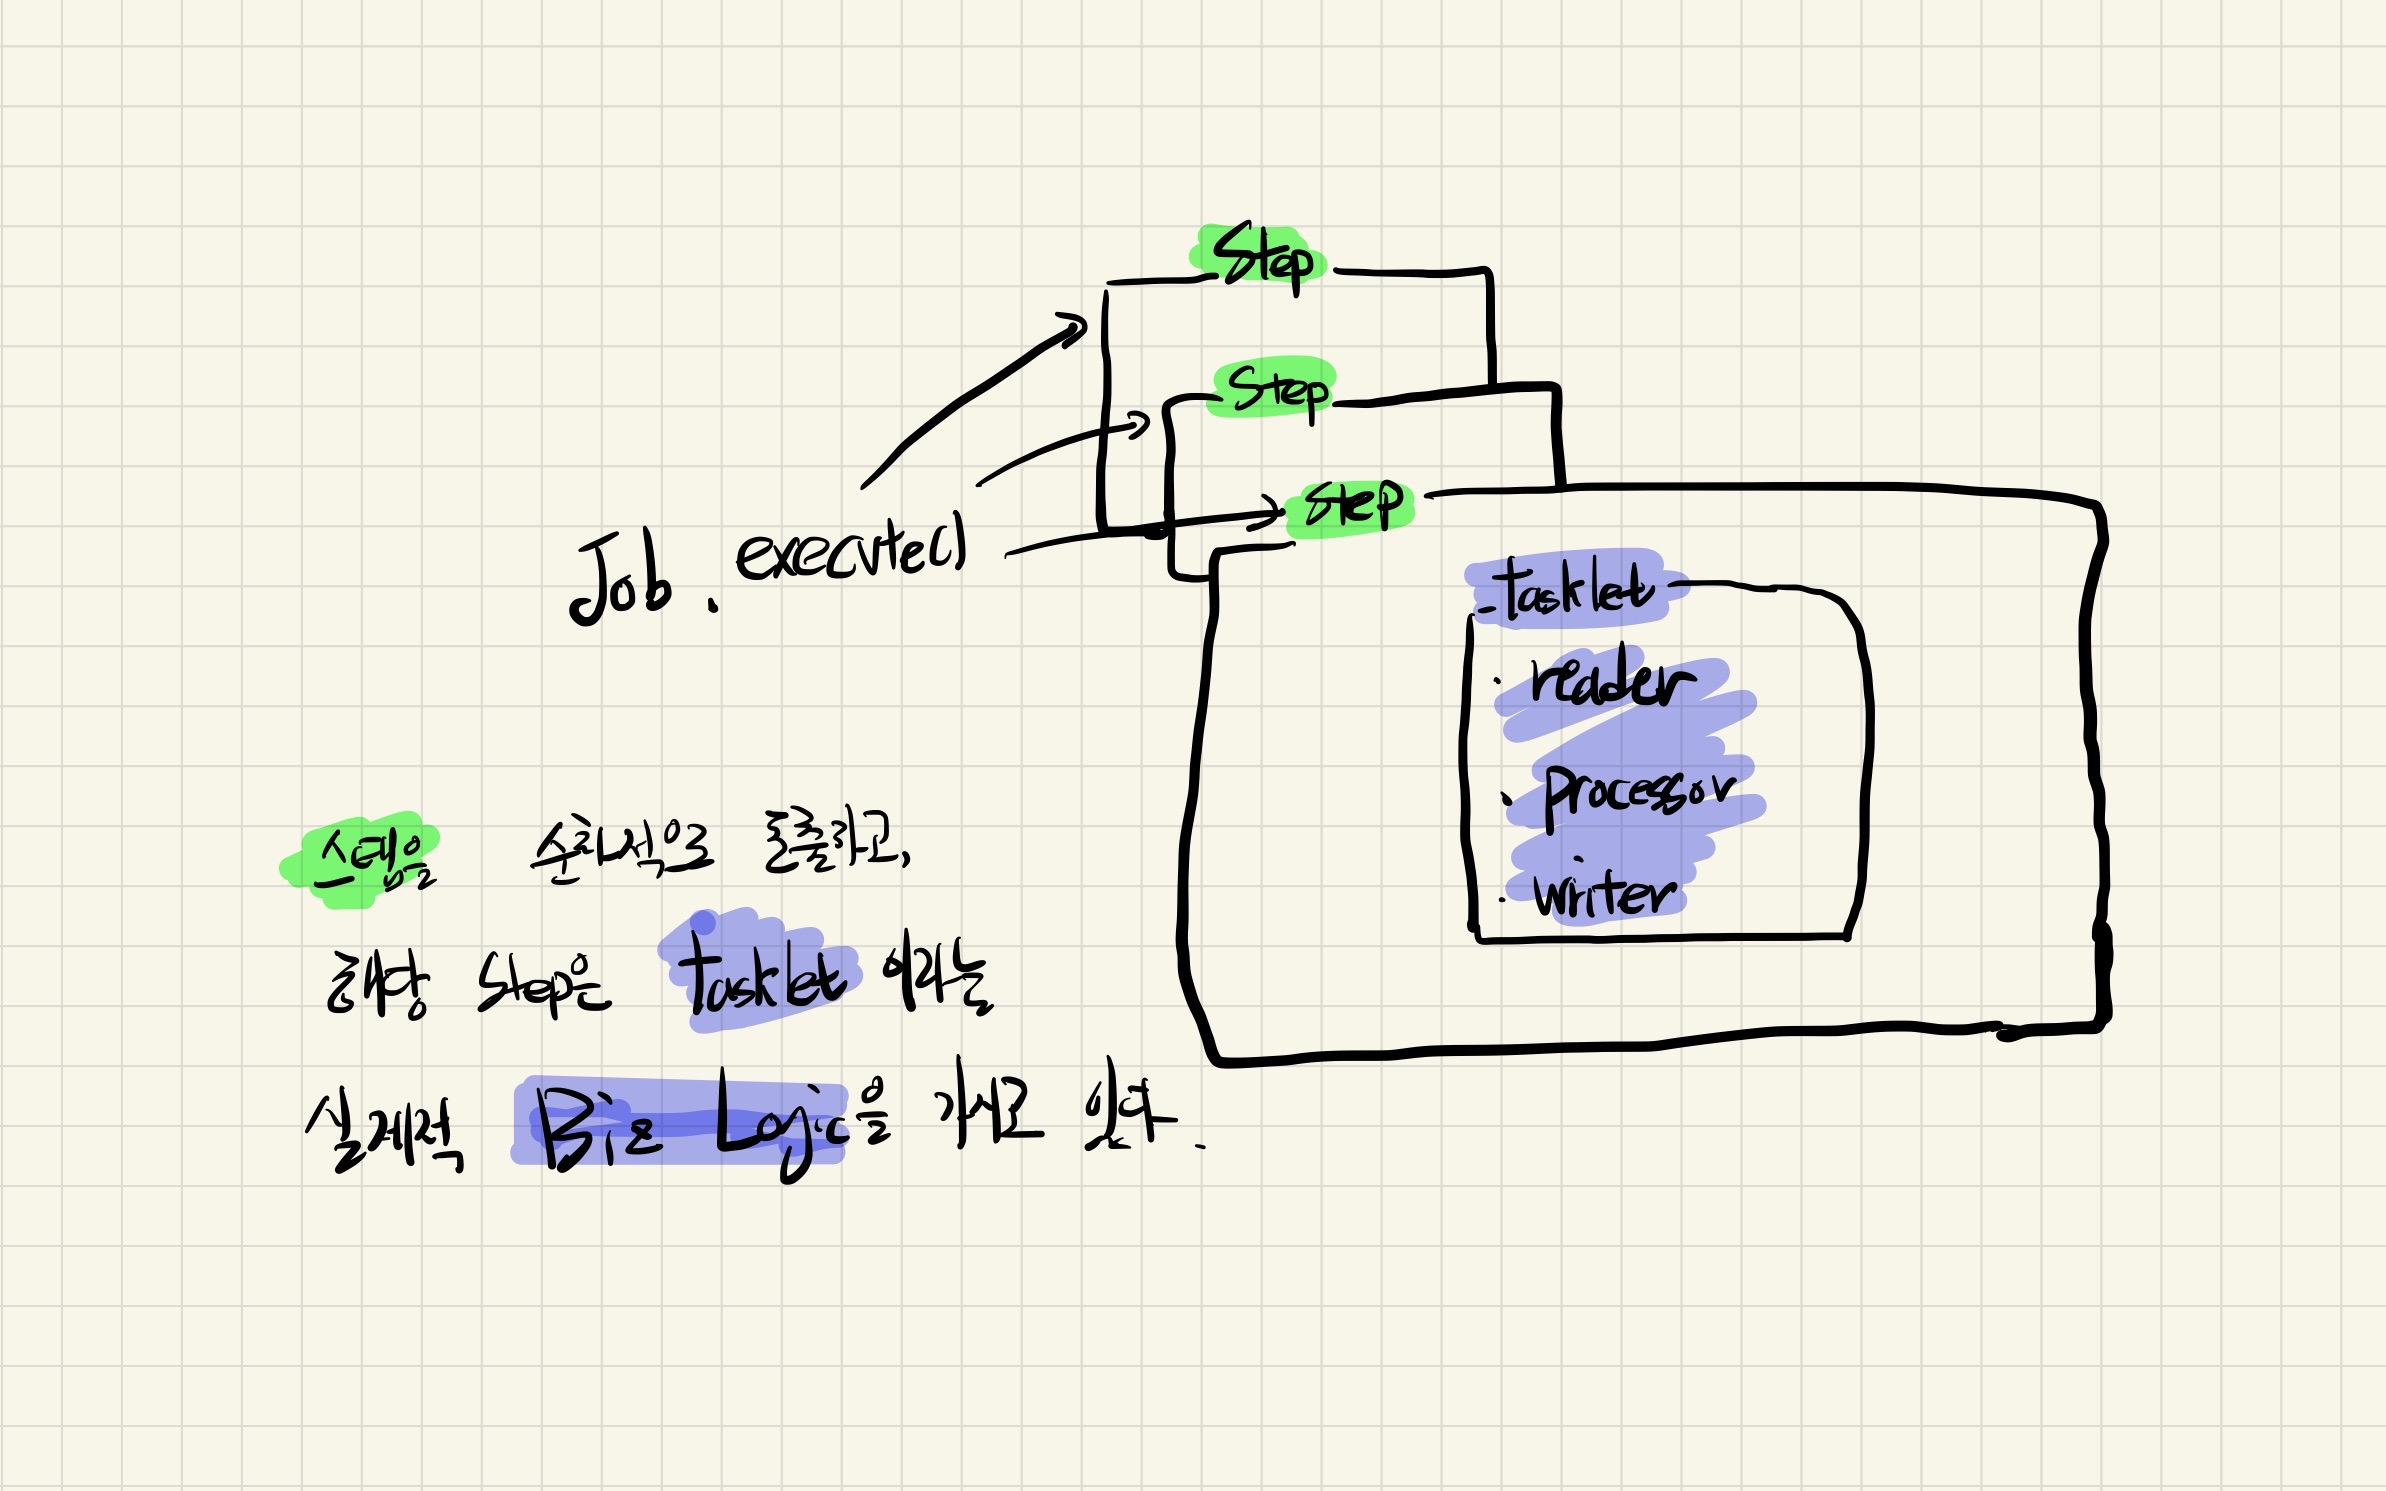 Step
Step
Job. executed
Step
Tasklet
· reader
· processor
· writer
스텝을 순차적으로 호출하고,
해당 Step은 Tasklet 이라는
실제적 Biz Logic을 가지고 있다.